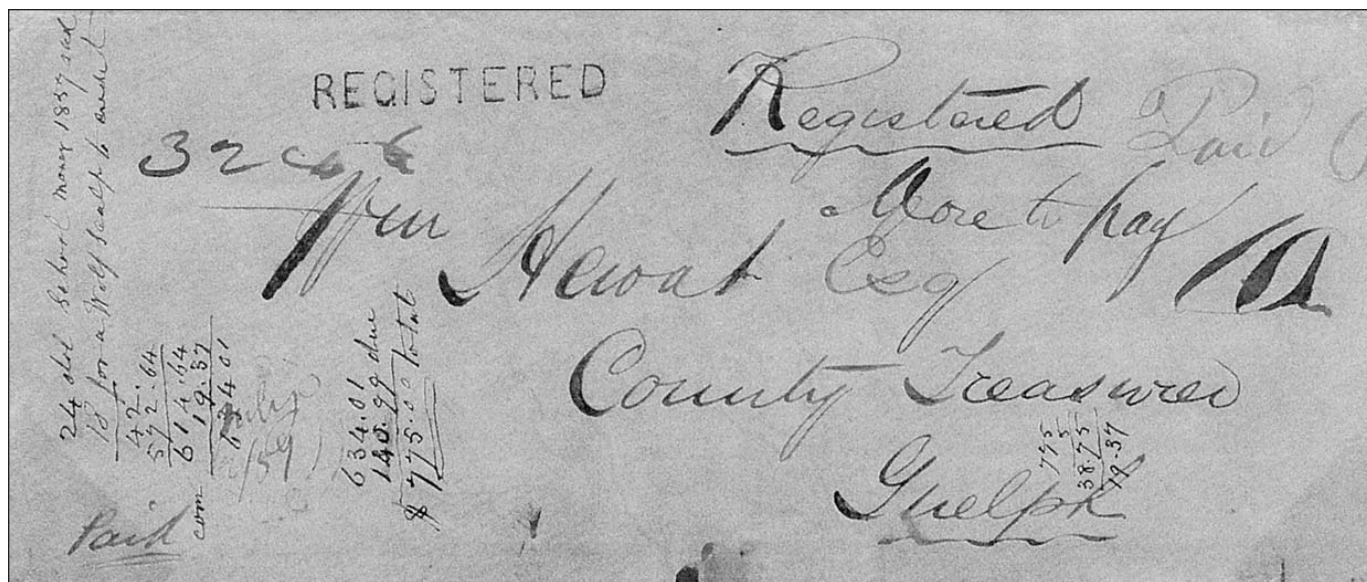 REGISTERED
Registered Paid
32
More to pay
Wm Hewat Esq
County Treasurer
Guelph
24 dol School money 1857
18 for a Wolf Scalp to
42.
572.64
614.64
com 19.37
634.01
July
/59
634.01
140.99 due
$775.00 total
775
5
38.75
19.37
Paid